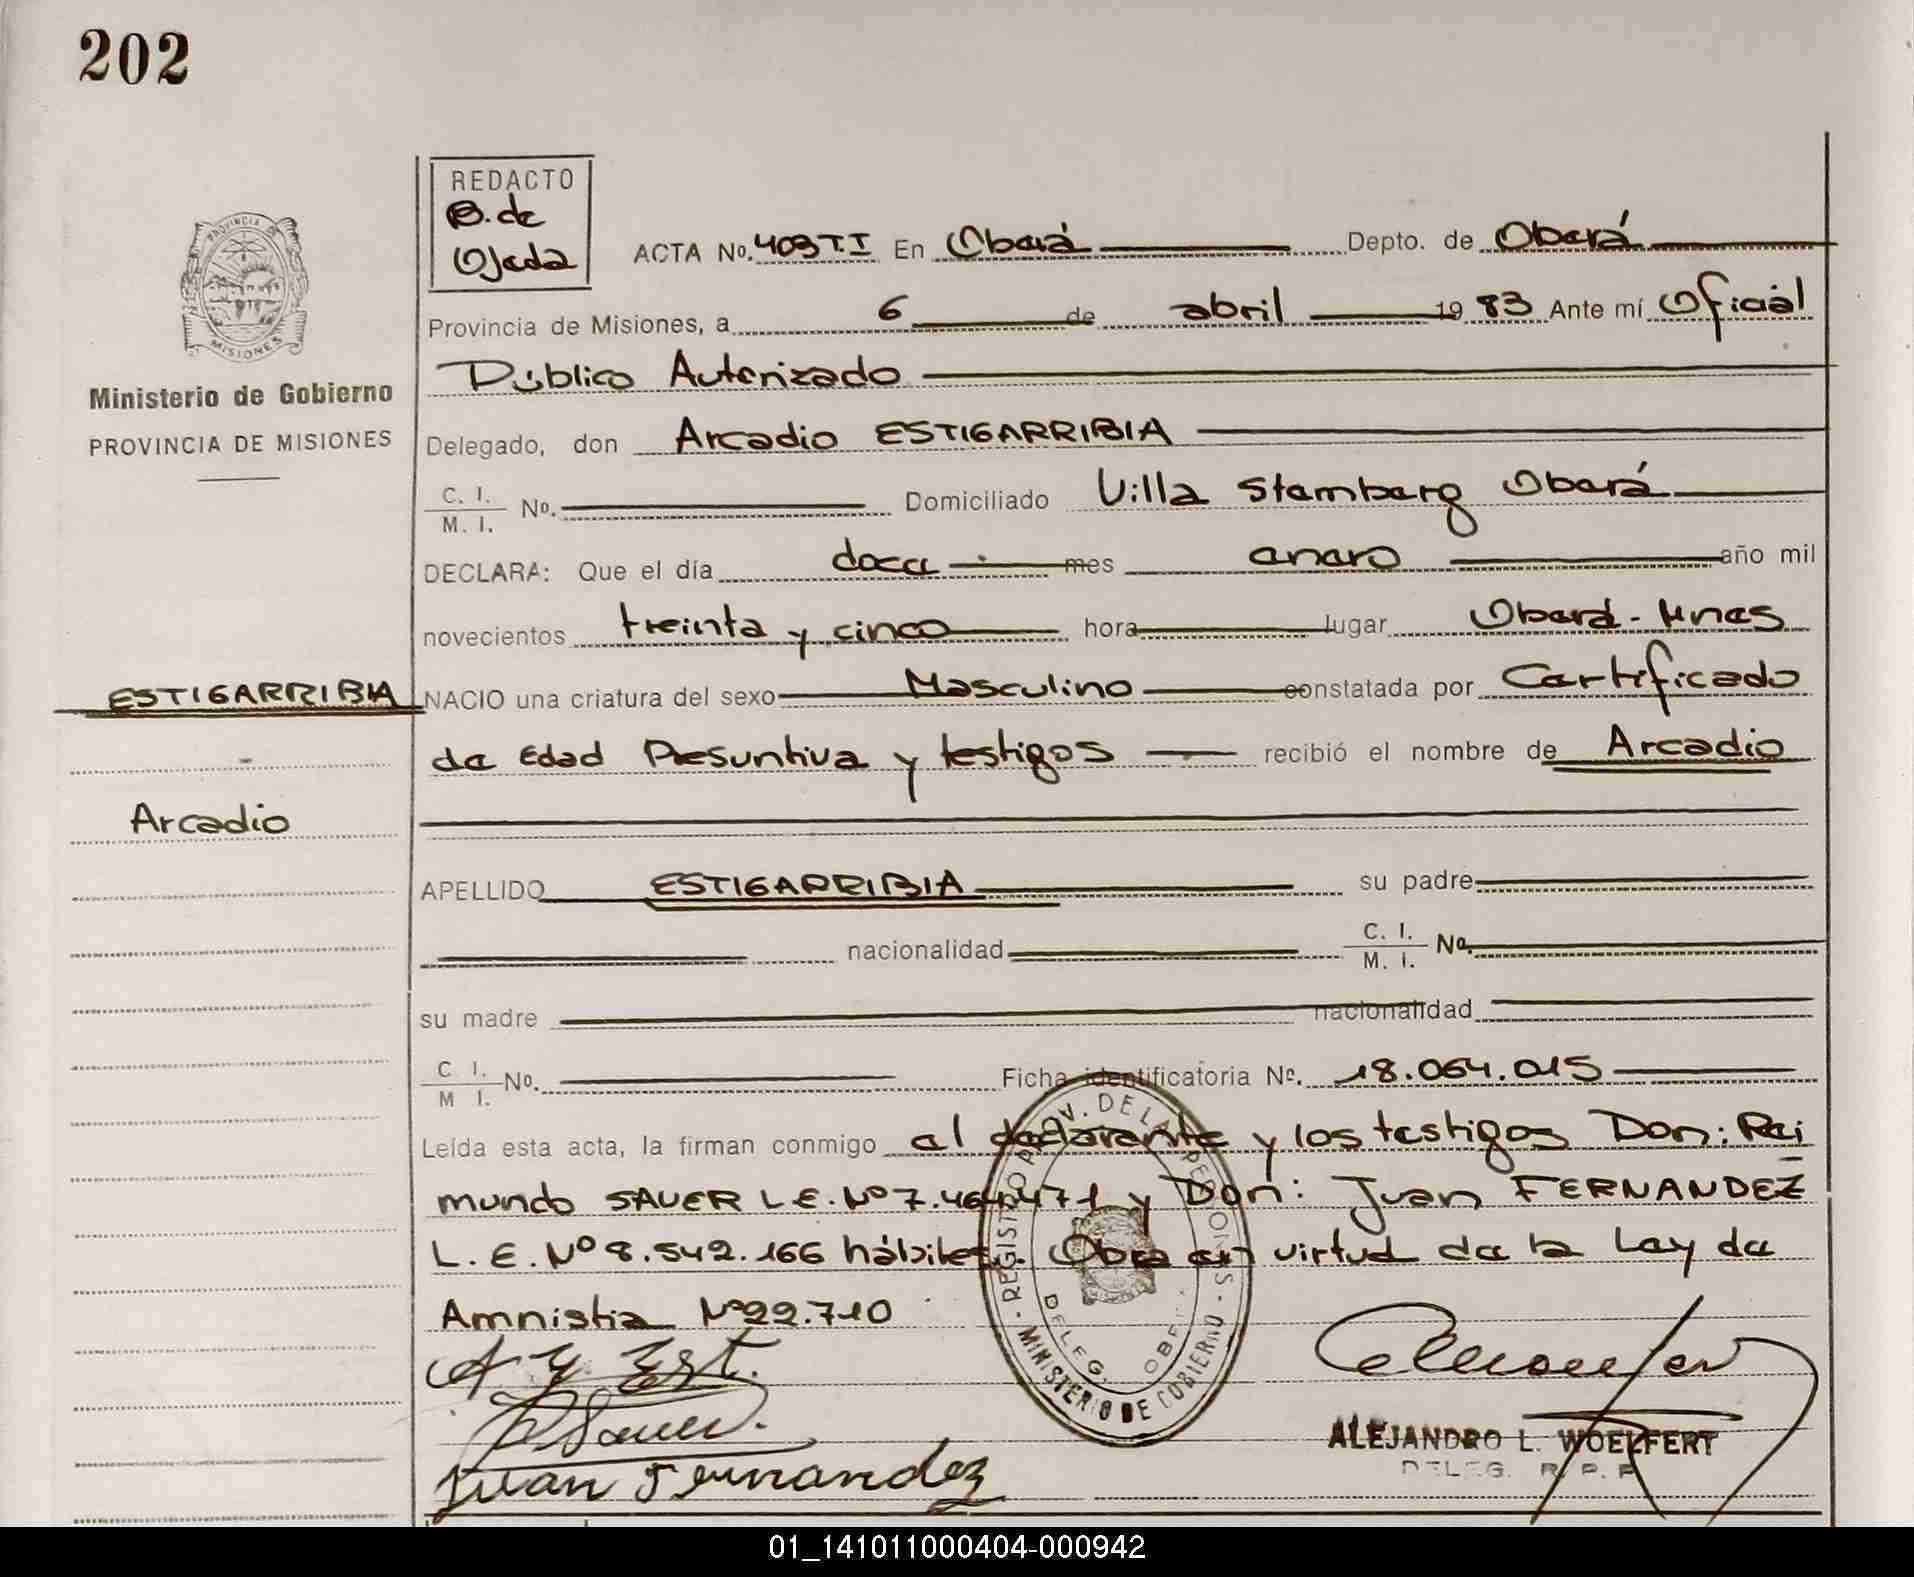 202
PROVINCIA DE
MISIONES
Ministerio de Gobierno
PROVINCIA DE MISIONES
REDACTO
B. de
Ojeda
ACTA No. 403 T.I En Oberá Depto. de Oberá
Provincia de Misiones, a 6 de abril 1983 Ante mí Oficial
Público Autorizado
Delegado, don Arcadio ESTIGARRIBIA
C. I.
M. I. No. Domiciliado Villa Stemberg Oberá
DECLARA: Que el día doce mes enero año mil
novecientos treinta y cinco hora lugar Oberá - Mnes
ESTIGARRIBIA NACIO una criatura del sexo Masculino constatada por Certificado
de Edad Presuntiva y testigos recibió el nombre de Arcadio
- Arcadio
APELLIDO ESTIGARRIBIA su padre
nacionalidad C. I.
M. I. No.
su madre nacionalidad
C. I.
M I. No. Ficha identificatoria No. 18.064.015
Leída esta acta, la firman conmigo el declarante y los testigos Don: Rai
mundo SAUER L.E. Nº 7.464.471 y Don: Juan FERNANDEZ
L.E. Nº 8.542.166 hábiles. Obra en virtud de la Ley de
Amnistia Nº 22.710
A Y Est.
R Sauer.
Juan Fernandez
REGISTRO PROV. DE LAS PERSONAS
DELEG. OBERA
MINISTERIO DE GOBIERNO
ALEJANDRO L. WOELFERT
DELEG. R. P. P
01_141011000404-000942